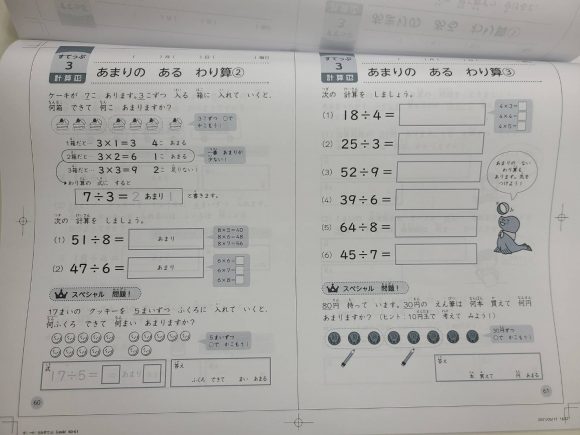 すてっぷ
3
計算
あまりの ある わり算②
ケーキが 7こ あります。3こずつ 入る 箱に 入れて いくと、
何箱 できて 何こ あまりますか?
3こずつ ○で
かこもう!
1箱だと… 3×1=3 4こ あまる
2箱だと… 3×2=6 1こ あまる
3箱だと… 3×3=9 2こ 足りない!
一番 あまりが
少ない!
わり算の 式に すると
7÷3=2あまり1 と書きます。
次の 計算を しましょう。
(1) 51÷8= あまり
8×5=40
8×6=48
8×7=56
(2) 47÷6= あまり
6×6=
6×7=
6×8=
スペシャル 問題!
17まいの クッキーを 5まいずつ ふくろに 入れて いくと、
何ふくろ できて 何まい あまりますか?
5まいずつ
○で かこもう!
式
17÷5= あまり
答え
ふくろ できて まい あまる
60
すてっぷ
3
計算
あまりの ある わり算③
次の 計算を しましょう。
(1) 18÷4=
4×3=
4×4=
4×5=
(2) 25÷3=
(3) 52÷9=
(4) 39÷6=
(5) 64÷8=
(6) 45÷7=
あまりの ない
わり算も
あります。気を
つけよう!
スペシャル 問題!
80円 持って います。30円の えん筆は 何本 買えて 何円
あまりますか?(ヒント:10円玉で 考えて みよう!)
30円ずつ
○で かこもう!
答え
本 買えて 円 あまる
61